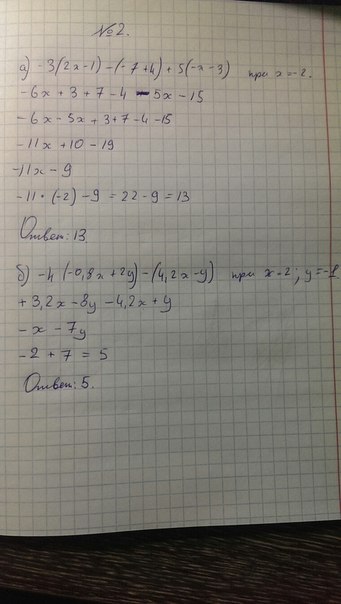 №2.
а) -3(2x-1)-(-7+4)+5(-x-3) при x=-2.
-6x+3+7-4-5x-15
-6x-5x+3+7-4-15
-11x+10-19
-11x-9
-11·(-2)-9=22-9=13
Ответ: 13
б) -4(-0,8x+2y)-(4,2x-y) при x=2; y=-1
+3,2x-8y-4,2x+y
-x-7y
-2+7=5
Ответ: 5.